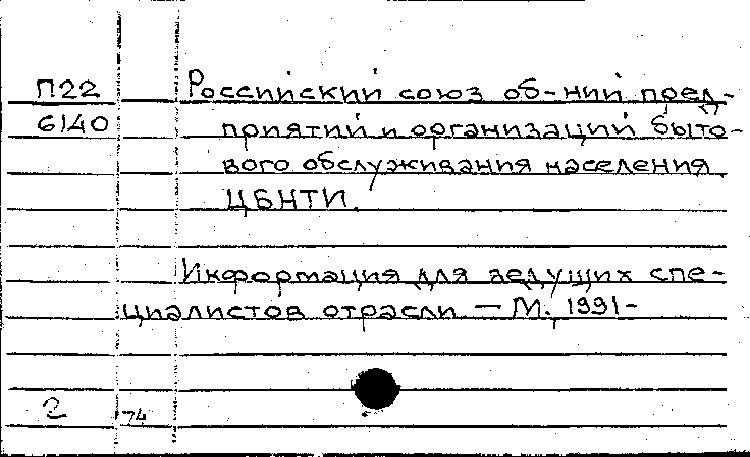 П22 Российский союз об-ний пред-
6140 приятий и организаций быто-
вого обслуживания населения.
ЦБНТИ.
Информация для ведущих спе-
циалистов отрасли. — М., 1991-
2 74